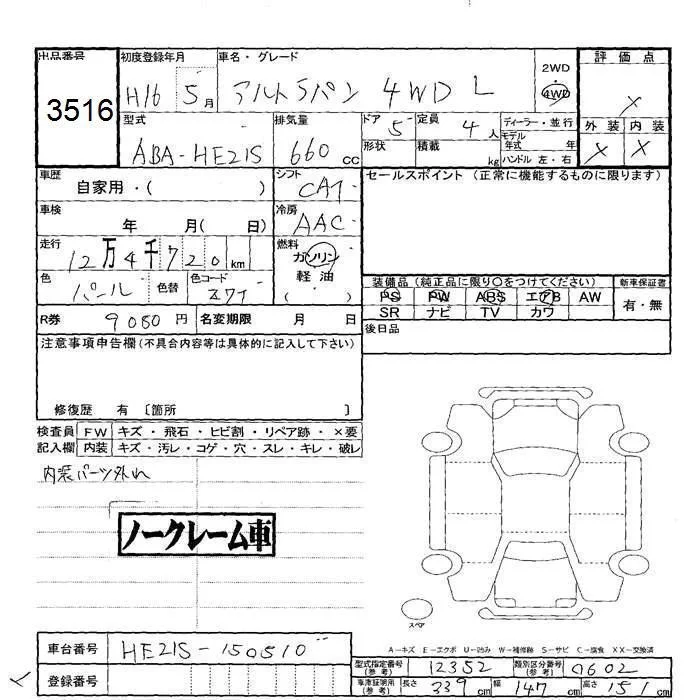 出品番号 初度登録年月 車名・グレード 2WD 評価点
3516 H16 5月 アルトラパン 4WD L 4WD X
型式 排気量 ドア 5 定員 4人 ディーラー・並行 外装 内装
ABA-HE21S 660cc 形状 積載 kg モデル年式 年 X X
ハンドル 左・右
車歴 自家用・( ) シフト CAT セールスポイント (正常に機能するものに限ります)
車検 年 月( 日) 冷房 AAC
走行 12万4千720km 燃料 ガソリン
軽油
( )
色 パール 色替 色コード Z7T
装備品 (純正品に限り○をつけてください) 新車保証書
PS PW ABS エアB AW 有・無
SR ナビ TV カワ
R券 9080円 名変期限 月 日 後日品
注意事項申告欄 (不具合内容等は具体的に記入して下さい)
修復歴 有 〔箇所 〕
検査員 FW キズ・飛石・ヒビ割・リペア跡・×要
記入欄 内装 キズ・汚レ・コゲ・穴・スレ・キレ・破レ
内装パーツ外れ
ノークレーム車
スペア
A―キズ E―エクボ U―凹み W―補修跡 S―サビ C―腐食 XX―交換済
車台番号 HE21S-150510
型式指定番号(参考) 12352 類別区分番号(参考) 0602
登録番号
車庫証明用(参考) 長さ 339cm 幅 147cm 高さ 151cm